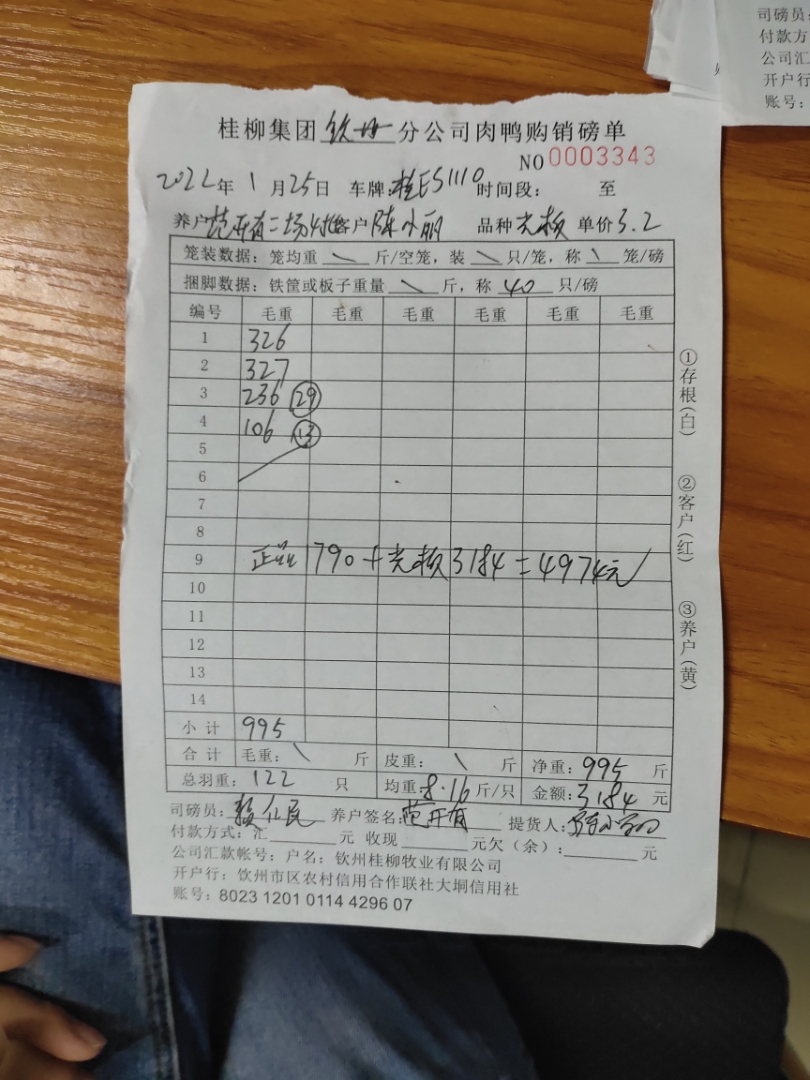 桂柳集团钦州分公司肉鸭购销磅单
NO 0003343
2022年 1月25日 车牌:桂ES1110 时间段: 至
养户范开有二场 客户陈小丽 品种 单价3.2
笼装数据: 笼均重 \ 斤/空笼, 装 \ 只/笼, 称 \ 笼/磅
捆脚数据: 铁筐或板子重量 \ 斤, 称 40 只/磅
编号 毛重 毛重 毛重 毛重 毛重 毛重
1 326
2 327
3 236 29
4 106 13
5
6
7
8
9 正品1790+ 3184=4974元
10
11
12
13
14
小计 995
合计 毛重: \ 斤 皮重: \ 斤 净重: 995 斤
总羽重: 122 只 均重: 8.16 斤/只 金额: 3184 元
司磅员: 养户签名: 范开有 提货人:
付款方式: 汇 元 收现 元欠(余): 元
公司汇款帐号: 户名: 钦州桂柳牧业有限公司
开户行: 钦州市区农村信用合作联社大垌信用社
账号: 8023 1201 0114 4296 07
①存根(白)
②客户(红)
③养户(黄)
司磅员:
付款方
公司汇
开户行
账号: